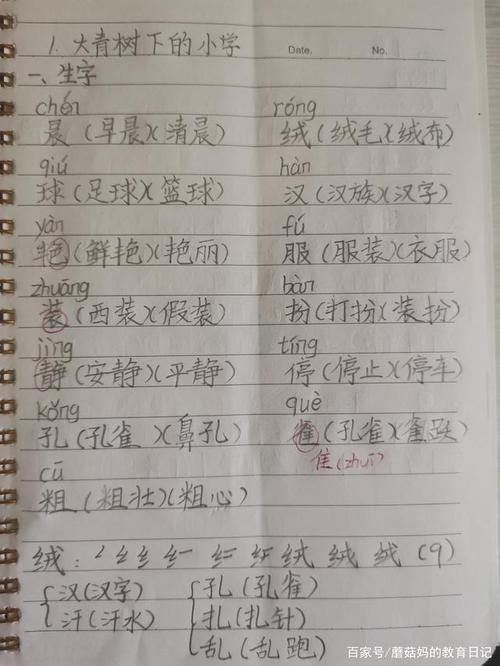 1. 大青树下的小学
Date. No.
一、生字
chén róng
晨 (早晨)(清晨) 绒 (绒毛)(绒布)
qiú hàn
球 (足球)(篮球) 汉 (汉族)(汉字)
yàn fú
艳 (鲜艳)(艳丽) 服 (服装)(衣服)
zhuāng bàn
装 (西装)(假装) 扮 (打扮)(装扮)
jìng tíng
静 (安静)(平静) 停 (停止)(停车)
kǒng què
孔 (孔雀)(鼻孔) 雀 (孔雀)(雀跃)
隹 (zhuī)
cū
粗 (粗壮)(粗心)
绒: 绒 绒 绒 (9)
汉 (汉字) 孔 (孔雀)
汗 (汗水) 扎 (扎针)
乱 (乱跑)
百家号/蘑菇妈的教育日记